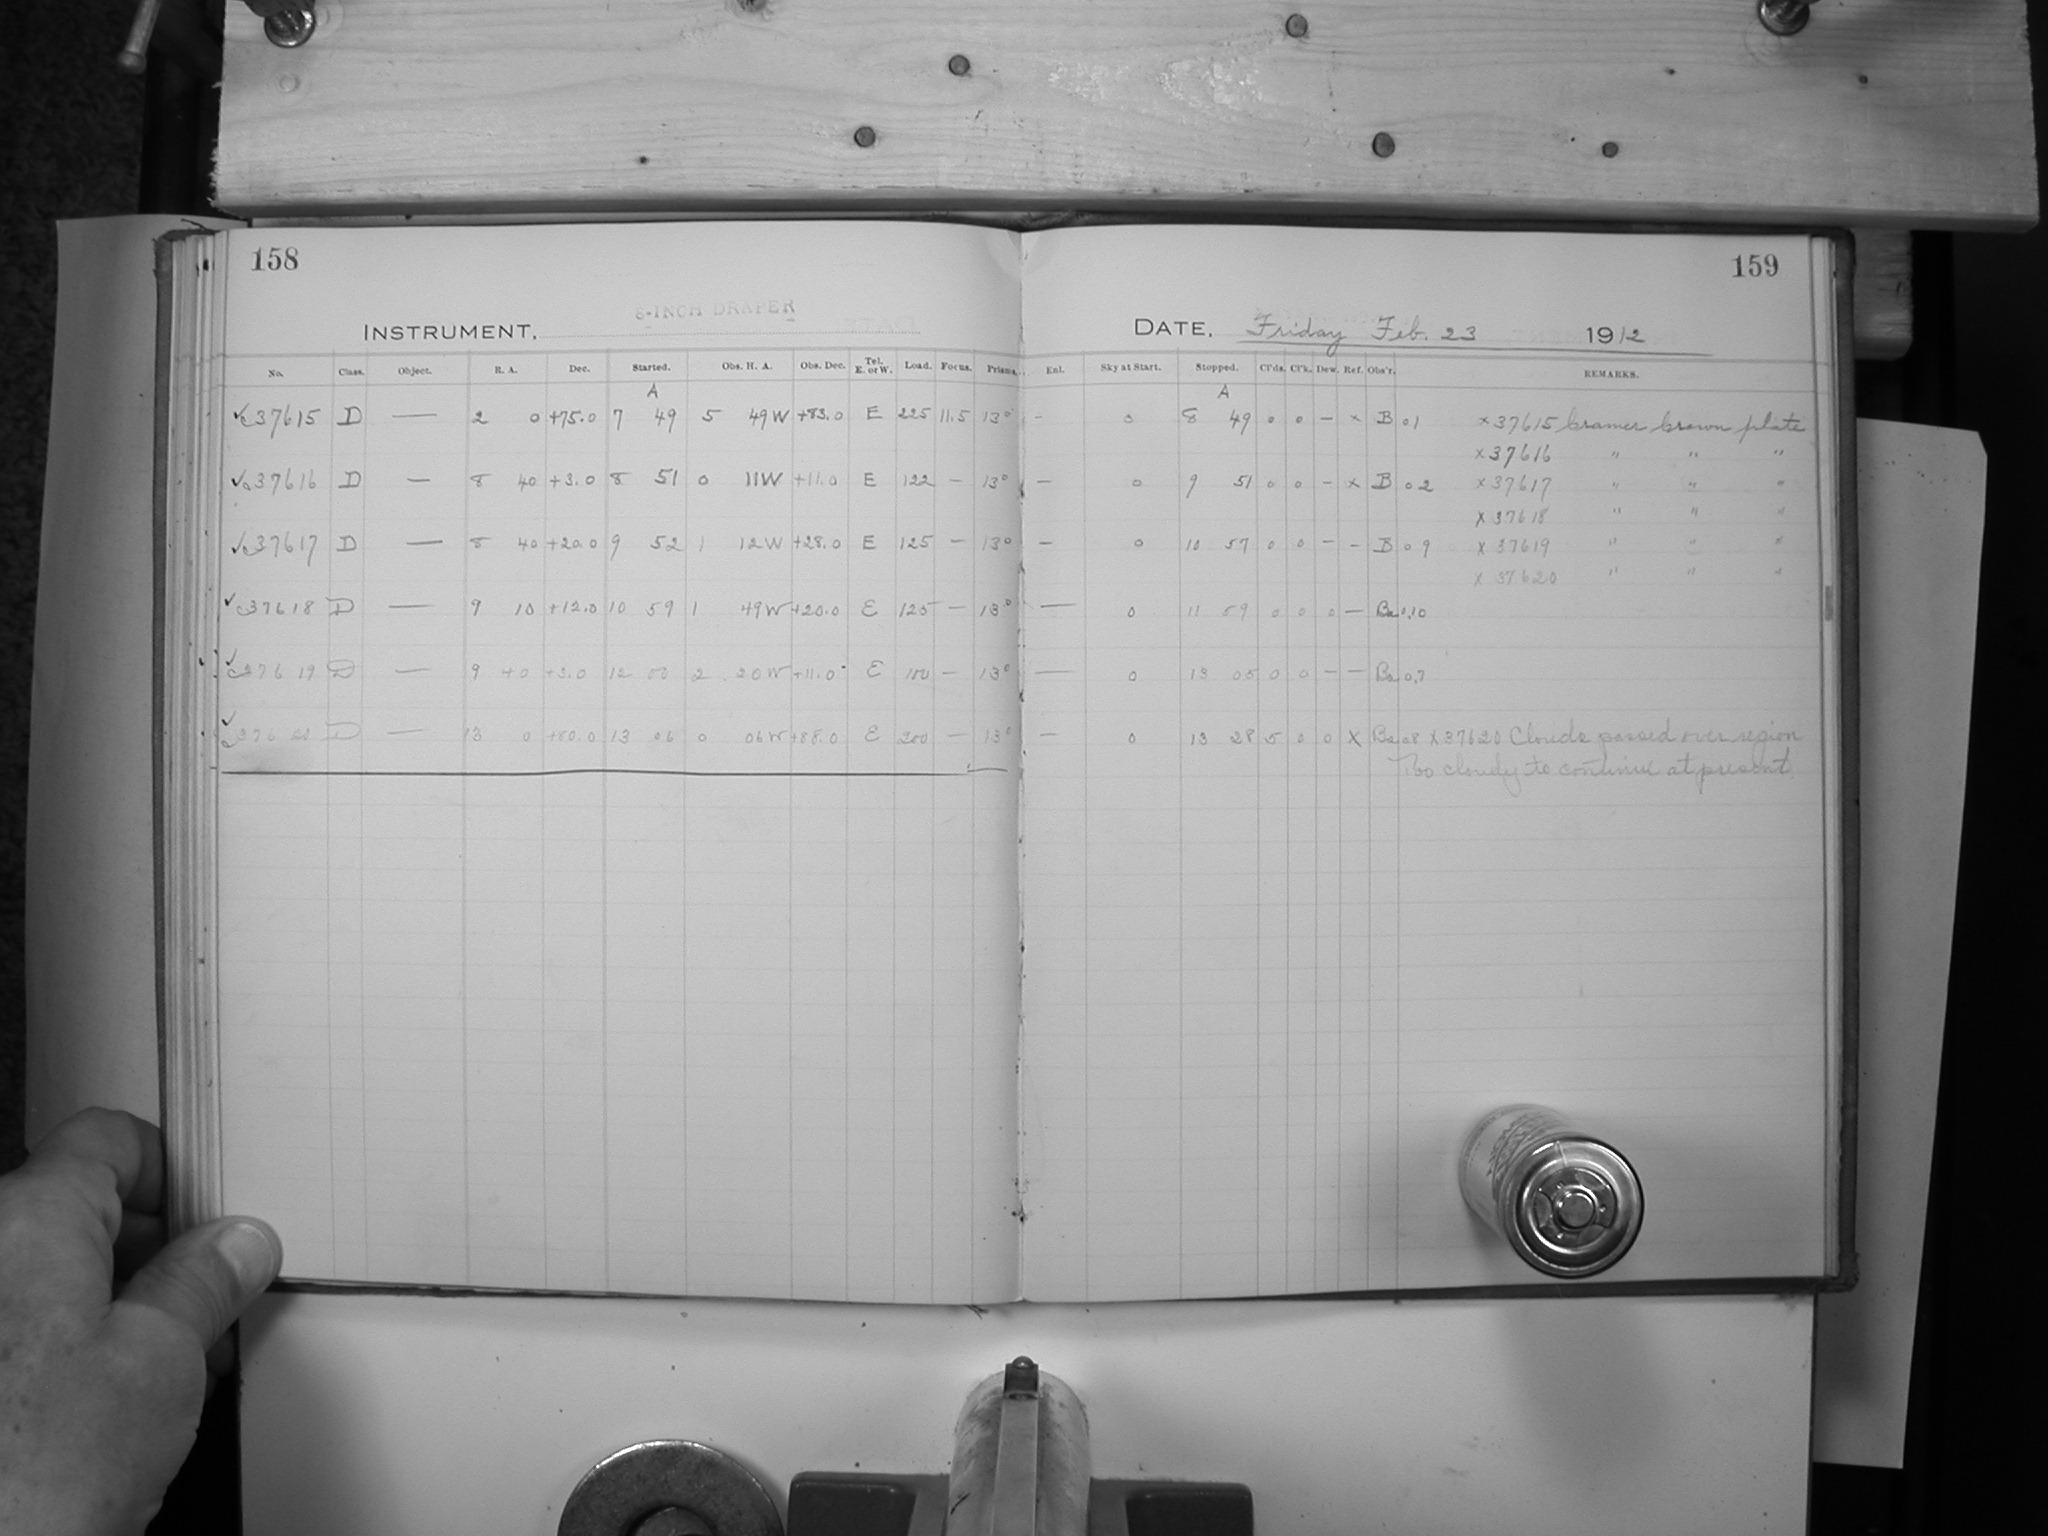 158
INSTRUMENT. 8-INCH DRAPER
No. Class. Object. R. A. Dec. Started. Obs. H. A. Obs. Dec. Tel. E. or W. Load. Focus. Prisms.
A
✓ c37615 D — 2 0 +75.0 7 49 5 49W +83.0 E 225 11.5 13°
✓ c37616 D — 8 40 +3.0 8 51 0 11W +11.0 E 122 — 13°
✓ c37617 D — 8 40 +20.0 9 52 1 12W +28.0 E 125 — 13°
✓ c37618 D — 9 10 +12.0 10 59 1 49W +20.0 E 125 — 13°
✓ c37619 D — 9 40 +3.0 12 00 2 20W +11.0 E 100 — 13°
✓ c37620 D — 13 0 +80.0 13 06 0 06W +88.0 E 200 — 13°
159
DATE. Friday Feb. 23 1912
Enl. Sky at Start. Stopped. Cl'ds. Cl'k. Dew. Ref. Obs'r. REMARKS.
A
- 0 8 49 0 0 - x B 01 x37615 Cramer Crown plate
x37616 " " "
— 0 9 51 0 0 - x B 02 x37617 " " "
x37618 " " "
— 0 10 57 0 0 - - B 09 x37619 " " "
x37620 " " "
— 0 11 59 0 0 0 — Ba 0,10
— 0 13 05 0 0 — — Ba 0,7
— 0 13 28 5 0 0 X Ba 08 X37620 Clouds passed over region
Too cloudy to continue at present.